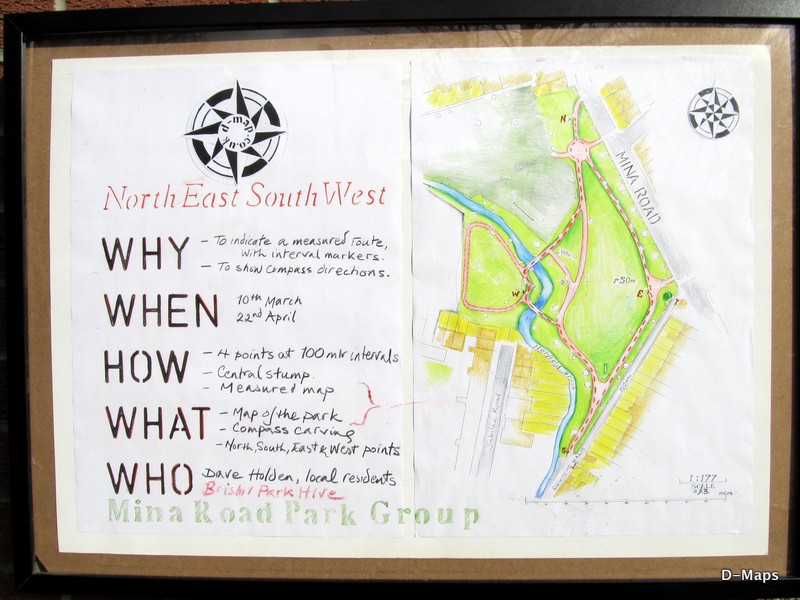 d-map.co.uk
North East South West
WHY
- To indicate a measured route,
with interval markers.
- To show compass directions.
WHEN
10th March
22nd April
HOW
- 4 points at 100 mtr intervals
- Central stump.
- Measured map
WHAT
- Map of the park
- Compass carving
- North, South, East & West points
WHO
Dave Holden, local residents
Bristol Park Hive
Mina Road Park Group
N
MINA ROAD
r 50m
W
E
T
S
Road
1:177
SCALE
D-Maps